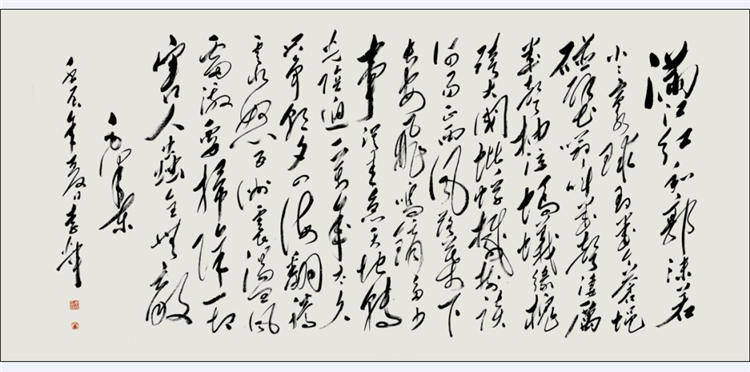 满江红和郭沫若
小小寰球有几个苍蝇
碰壁嗡嗡叫几声凄厉
几声抽泣蚂蚁缘槐
夸大国蚍蜉撼树谈
何易正西风落叶下
长安飞鸣镝多少
事从来急天地转
光阴迫一万年太久
只争朝夕四海翻腾
云水怒五洲震荡风
雷激要扫除一切
害人虫全无敌
毛泽东
壬辰年夏日李